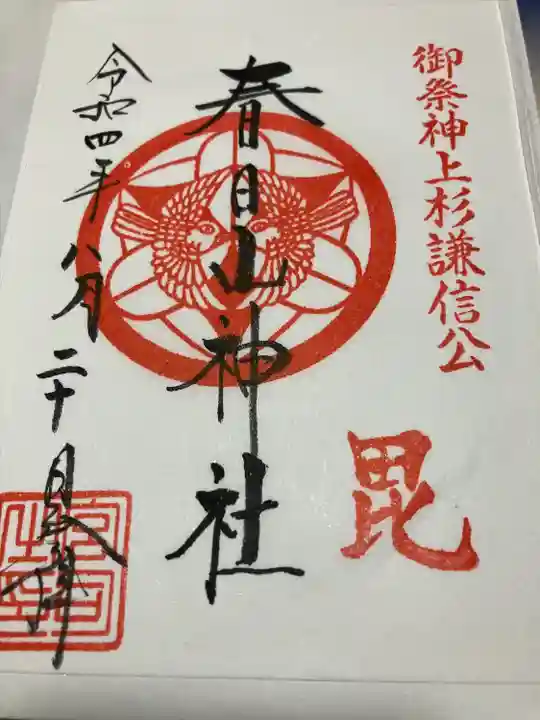 御祭神上杉謙信公
毘
春日山神社
令和四年八月二十日